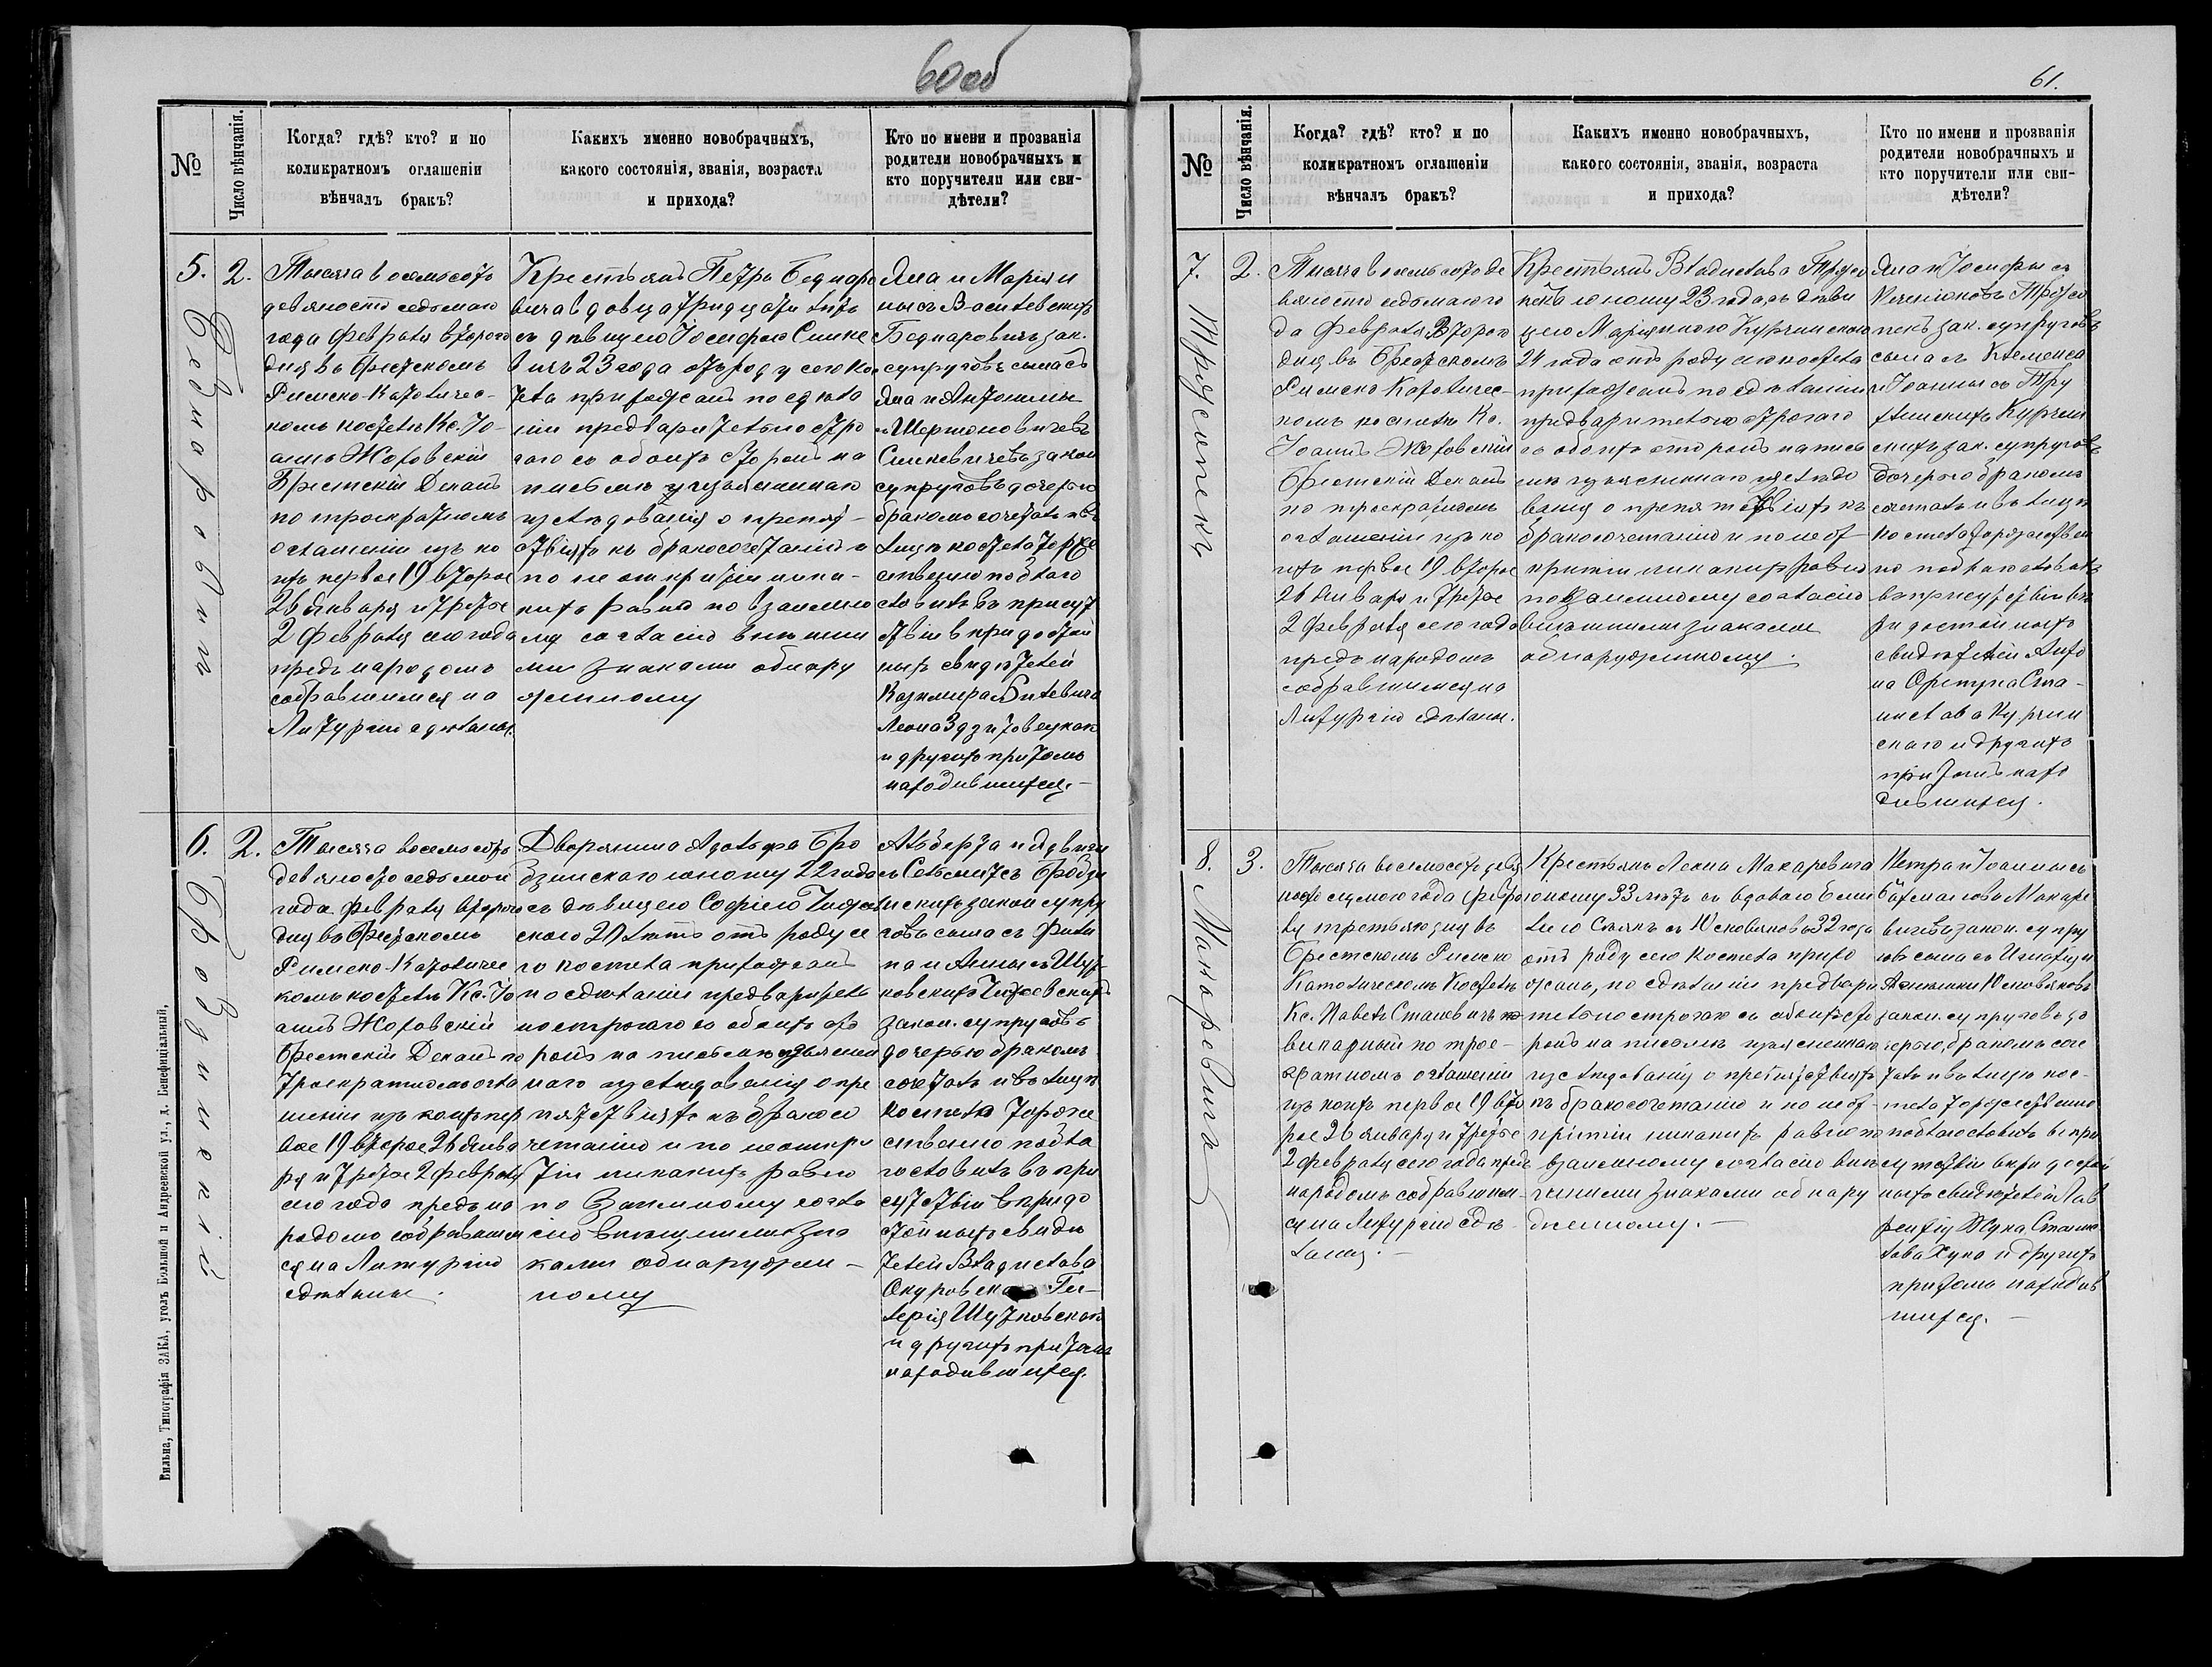 60об
№
Число вѣнчанія.
Когда? гдѣ? кто? и по
коликратномъ оглашеніи
вѣнчалъ бракъ?
Какихъ именно новобрачныхъ,
какого состоянія, званія, возраста
и прихода?
Кто по имени и прозванія
родители новобрачныхъ и
кто поручители или сви-
дѣтели?
5.
Беднаровичъ
2.
Тысяча восемьсотъ
девяносто седьмаго
года Февраля второго
дня въ Брестскомъ
Римско-Католичес-
комъ костелѣ Кс. Іо-
аннъ Жоховскій
Брестскій Деканъ
по троекратномъ
оглашеніи изъ ко
ихъ первое 19 второе
26 Января и третье
2 Февраля сего года
предъ народомъ
собравшимся на
Литургію сдѣланы.
Крестьянъ Петра Беднаро
вича вдовца тридцати лѣтъ
съ дѣвицею Іосифою Синке
вичъ 23 года отъ роду сего кос
тела прихожанъ по сдѣла
ніи предварительно стро
гаго съ обоихъ сторонъ на
письмѣ изъясненнаго
изслѣдованія о препят-
ствіяхъ къ бракосочетанію и
по не открытіи ника-
кихъ равно по взаимно
му согласію внѣшни
ми знаками обнару
женному
Яна и Маріян
ны съ Василевскихъ
Беднаровичъ зак.
супруговъ сына съ
Яна и Антонины
съ Шермоновичевъ
Синкевичевъ закон
супруговъ дочерью
бракомъ сочеталъ и въ
лицѣ костела торже
ственно поблаго
словилъ въ присут
ствіи вѣридостой
ныхъ свидѣтелей
Казимира Битевича
Леона Здзитовецкаго
и другихъ при томъ
находившихся.-
6.
Бродзинскій
2.
Тысяча восемьсотъ
девяносто седьмого
года Февраля второго
дня въ Брестскомъ
Римско-Католичес
комъ костелѣ Кс. Іо
аннъ Жоховскій
Брестскій Деканъ по
троекратномъ огла
шеніи изъ коихъ пер
вое 19 второе 26 Янва
ря и третье 2 Февраля
сего года предъ на
родомъ собравшим
ся на Литургію
сдѣланы.
Дворянина Адольфа Бро
дзинскаго юношу 22 года
съ дѣвицею Софіею
скою 20 лѣтъ отъ роду се
го костела прихожанъ
по сдѣланіи предваритель
но строгаго съ обоихъ сто
ронъ на письмѣ изъяснен
наго изслѣдованія о пре
пятствіяхъ къ бракосо
четанію и по не откры
тіи никакихъ равно
по взаимному согла
сію внѣшними зна
ками обнаружен-
ному
Альберта и Ядвиги
съ Бродзи
нскихъ закон супру
говъ сына съ Фили
па и Анны съ Шут
ковскихъ
закон. супруговъ
дочерью бракомъ
сочеталъ и въ лицѣ
костела торже
ственно побла
гословилъ въ при
сутствіи вѣридо
стойныхъ свидѣ
телей Владислава
Гил
лярія Шутковскаго
и другихъ при томъ
находившихся.
Вильна, Типографія ЗАКА, уголъ Большой и Андреевской ул., д. Бенефиціальный.
61.
№
Число вѣнчанія.
Когда? гдѣ? кто? и по
коликратномъ оглашеніи
вѣнчалъ бракъ?
Какихъ именно новобрачныхъ,
какого состоянія, званія, возраста
и прихода?
Кто по имени и прозванія
родители новобрачныхъ и
кто поручители или сви-
дѣтели?
7.
Трусинекъ
2.
Тысяча восемьсотъ де
вяносто седьмаго го
да Февраля Второго
дня въ Брестскомъ
Римско Католичес-
комъ костелѣ Кс.
Іоаннъ Жоховскій
Брестскій Деканъ
по троекратномъ
оглашеніи изъ ко
ихъ первое 19 второе
26 Января и третье
2 Февраля сего года
предъ народомъ
собравшимся на
Литургію сдѣланы.
Крестьянъ Владислава Труси
некъ юношу 23 года, съ дѣви
цею Маріянною Курчинскою
24 года отъ роду сего костела
прихожанъ по сдѣланіи
предварительно строгаго
съ обоихъ сторонъ на пись
мѣ изъясненнаго изслѣдо
ванія о препятствіяхъ къ
бракосочетанію и по не от
крытіи никакихъ равно
по взаимному согласію
внѣшними знаками
обнаруженному.
Яна и Іосифы съ
Труси
некъ зак. супруговъ
сына съ Клеменса
и Іоанны съ
Курчин
скихъ зак. супруговъ
дочерью бракомъ
сочеталъ и въ лицѣ
костела торжествен
но поблагословилъ
въ присутствіи вѣ
ридостойныхъ
свидѣтелей Анто
на Ста-
нислава Курчин
скаго и другихъ
при томъ нахо
дившихся.
8.
Макаревичъ
3.
Тысяча восемьсотъ девя
носто седьмого года Февра
ля третьяго дня въ
Брестскомъ Римско
Католическомъ Костелѣ
Кс. Павелъ Становичъ
викарный по трое-
кратномъ оглашеніи
изъ коихъ первое 19 вто
рое 26 января и третье
2 февраля сего года предъ
народомъ собравшим-
ся на Литургію сдѣ-
ланы.-
Крестьянъ Леона Макаревича
юношу 33 лѣтъ съ вдовою Еми
ліею съ Юсковяковъ 32 года
отъ роду сего костела прихо
жанъ, по сдѣланіи предвари
тельно строгаго съ обоихъ сто
ронъ на письмѣ изъясненнаго
изслѣдованія о препятствіяхъ
къ бракосочетанію и по не от
крытіи никакихъ равно по
взаимному согласію внѣ
шними знаками обнару
женному.-
Петра и Іоанны съ
Макаре
вичевъ закон. супру
говъ сына съ Игнатія и
Юсковяковъ
закон. супруговъ до
черью, бракомъ соче
талъ и въ лицѣ кос-
тела торжественно
поблагословилъ въ при
сутствіи вѣридостой
ныхъ свидѣтелей Лав
рентія Жука Станис
лава Хука и другихъ
при томъ находив
шихся.-